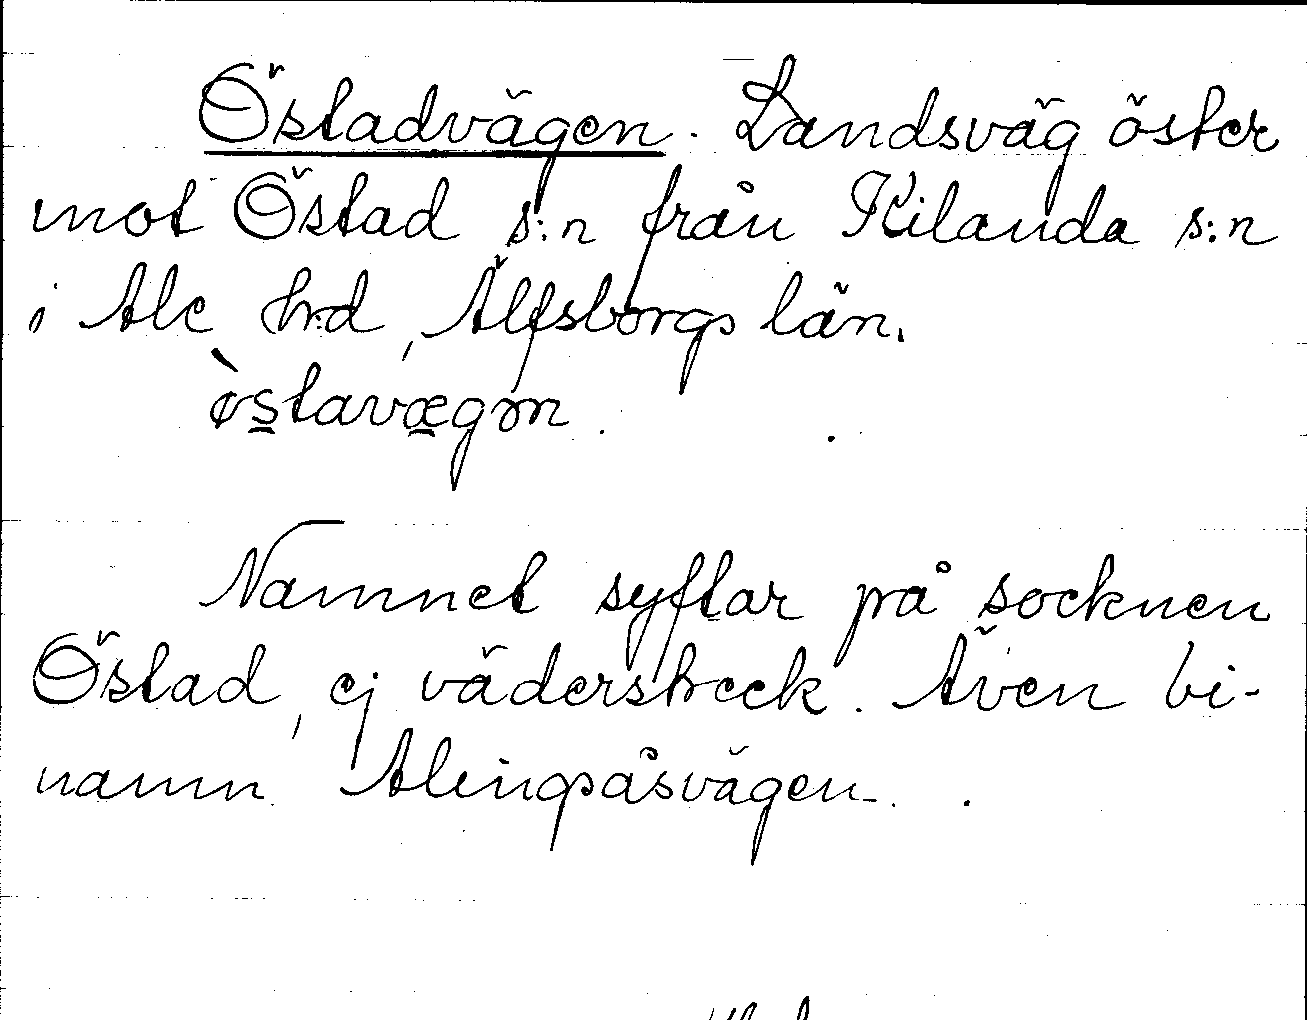 Östadvägen. Landsväg öster
mot Östad s:n från Kilanda s:n
i Ale h:d, Älfsborgs län.
Namnet syftar på socknen
Östad, ej väderstreck. Även bi-
namn Alingsåsvägen.